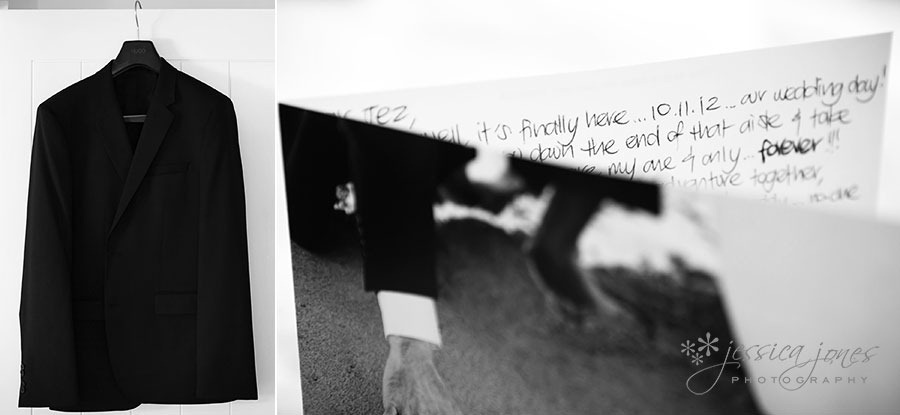 HUGO
Jez,
well it's finally here... 10.11.12... our wedding day!
down the end of that aisle & take
my one & only... forever!!!
adventure together,
no one
jessica jones
PHOTOGRAPHY